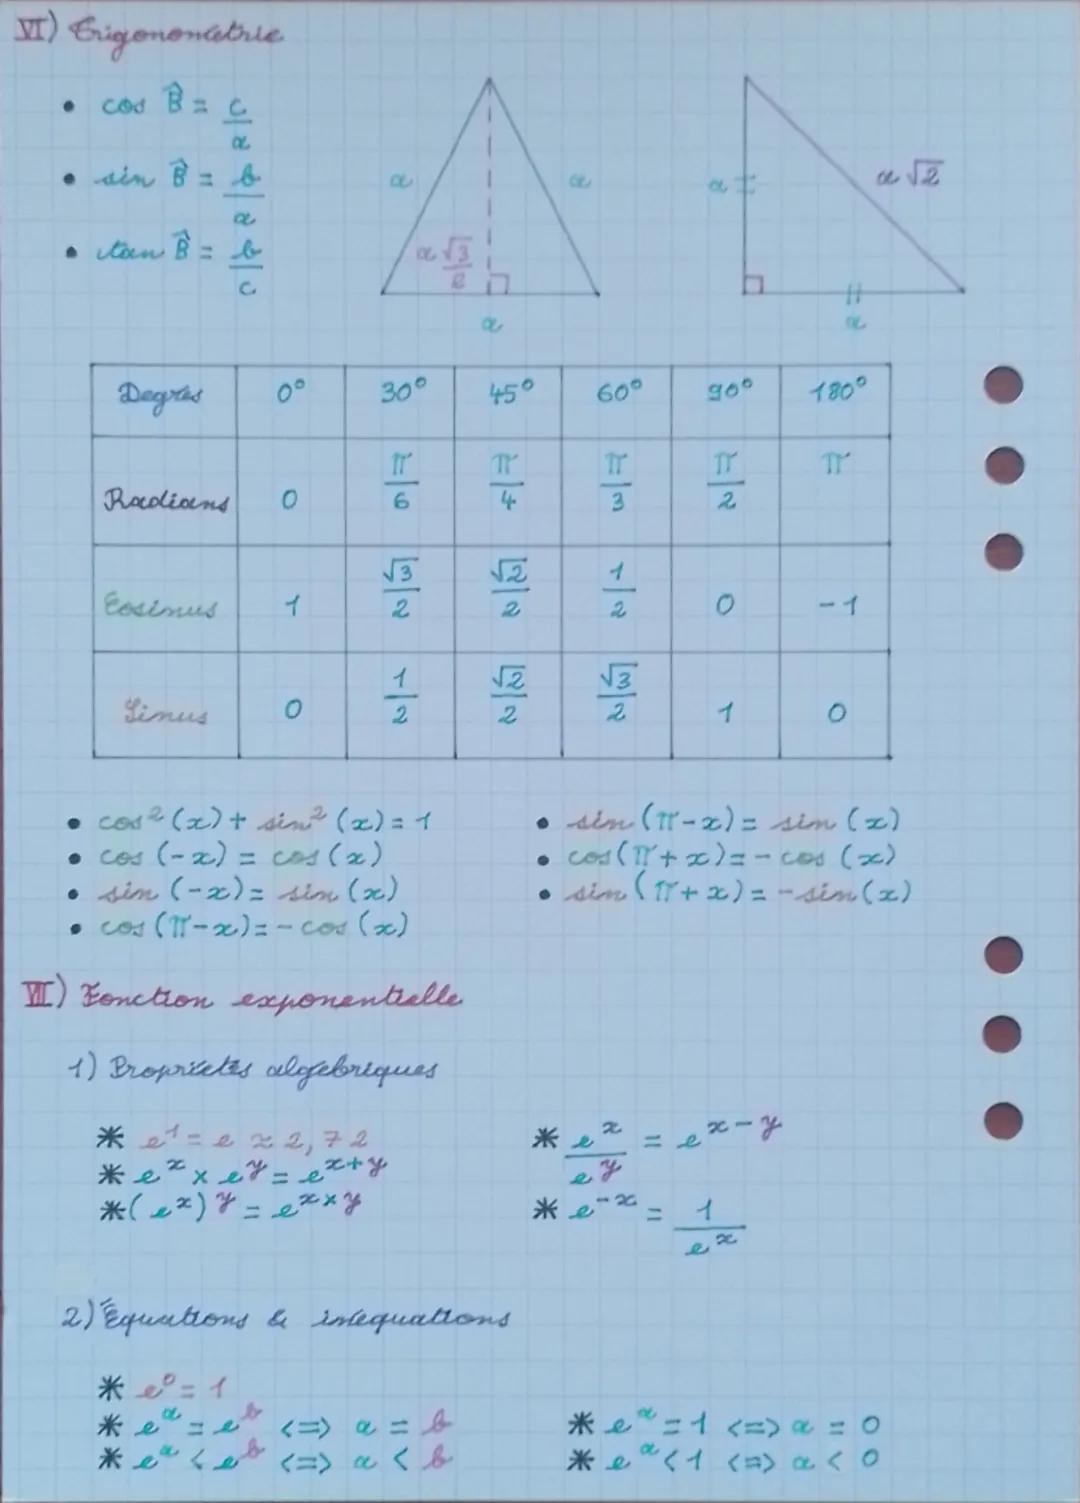 VI) Trigonométrie
• cos B̂ = c/a
• sin B̂ = b/a
• tan B̂ = b/c
a a a√3/2 a
a a√2 a
Degrés 0° 30° 45° 60° 90° 180°
Radians 0 π/6 π/4 π/3 π/2 π
Cosinus 1 √3/2 √2/2 1/2 0 -1
Sinus 0 1/2 √2/2 √3/2 1 0
• cos²(x) + sin²(x) = 1
• cos (-x) = cos (x)
• sin (-x) = sin (x)
• cos (π-x) = - cos (x)
• sin (π-x) = sin (x)
• cos (π+x) = - cos (x)
• sin (π+x) = - sin (x)
VII) Fonction exponentielle
1) Propriétés algébriques
* e¹ = e ≈ 2,72
* e^x × e^y = e^(x+y)
* (e^x)^y = e^(x×y)
* e^x/e^y = e^(x-y)
* e^(-x) = 1/e^x
2) Équations & inéquations
* e⁰ = 1
* e^a = e^b <=> a = b
* e^a < e^b <=> a < b
* e^a = 1 <=> a = 0
* e^a < 1 <=> a < 0